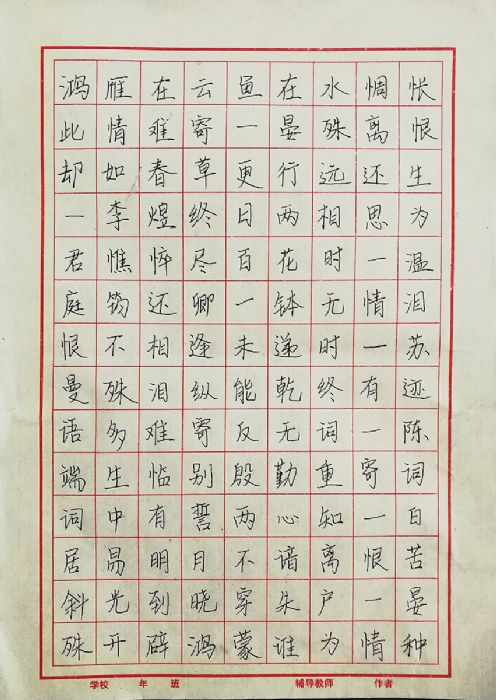 鸿雁在云鱼在水惆怅
此情难寄一晏殊离恨
却如春草更行远还生
一李煜终日两相思为
君憔悴尽百花时一温
庭筠还卿一钵无情泪
恨不相逢未递时一苏
曼殊泪纵能乾终有迹
语多难寄反无词一陈
端生临别殷勤重寄词
词中有誓两心知一白
居易明月不谙离恨苦
斜光到晓穿朱户一晏
殊开辟鸿蒙谁为情种
学校 年 班 辅导教师 作者